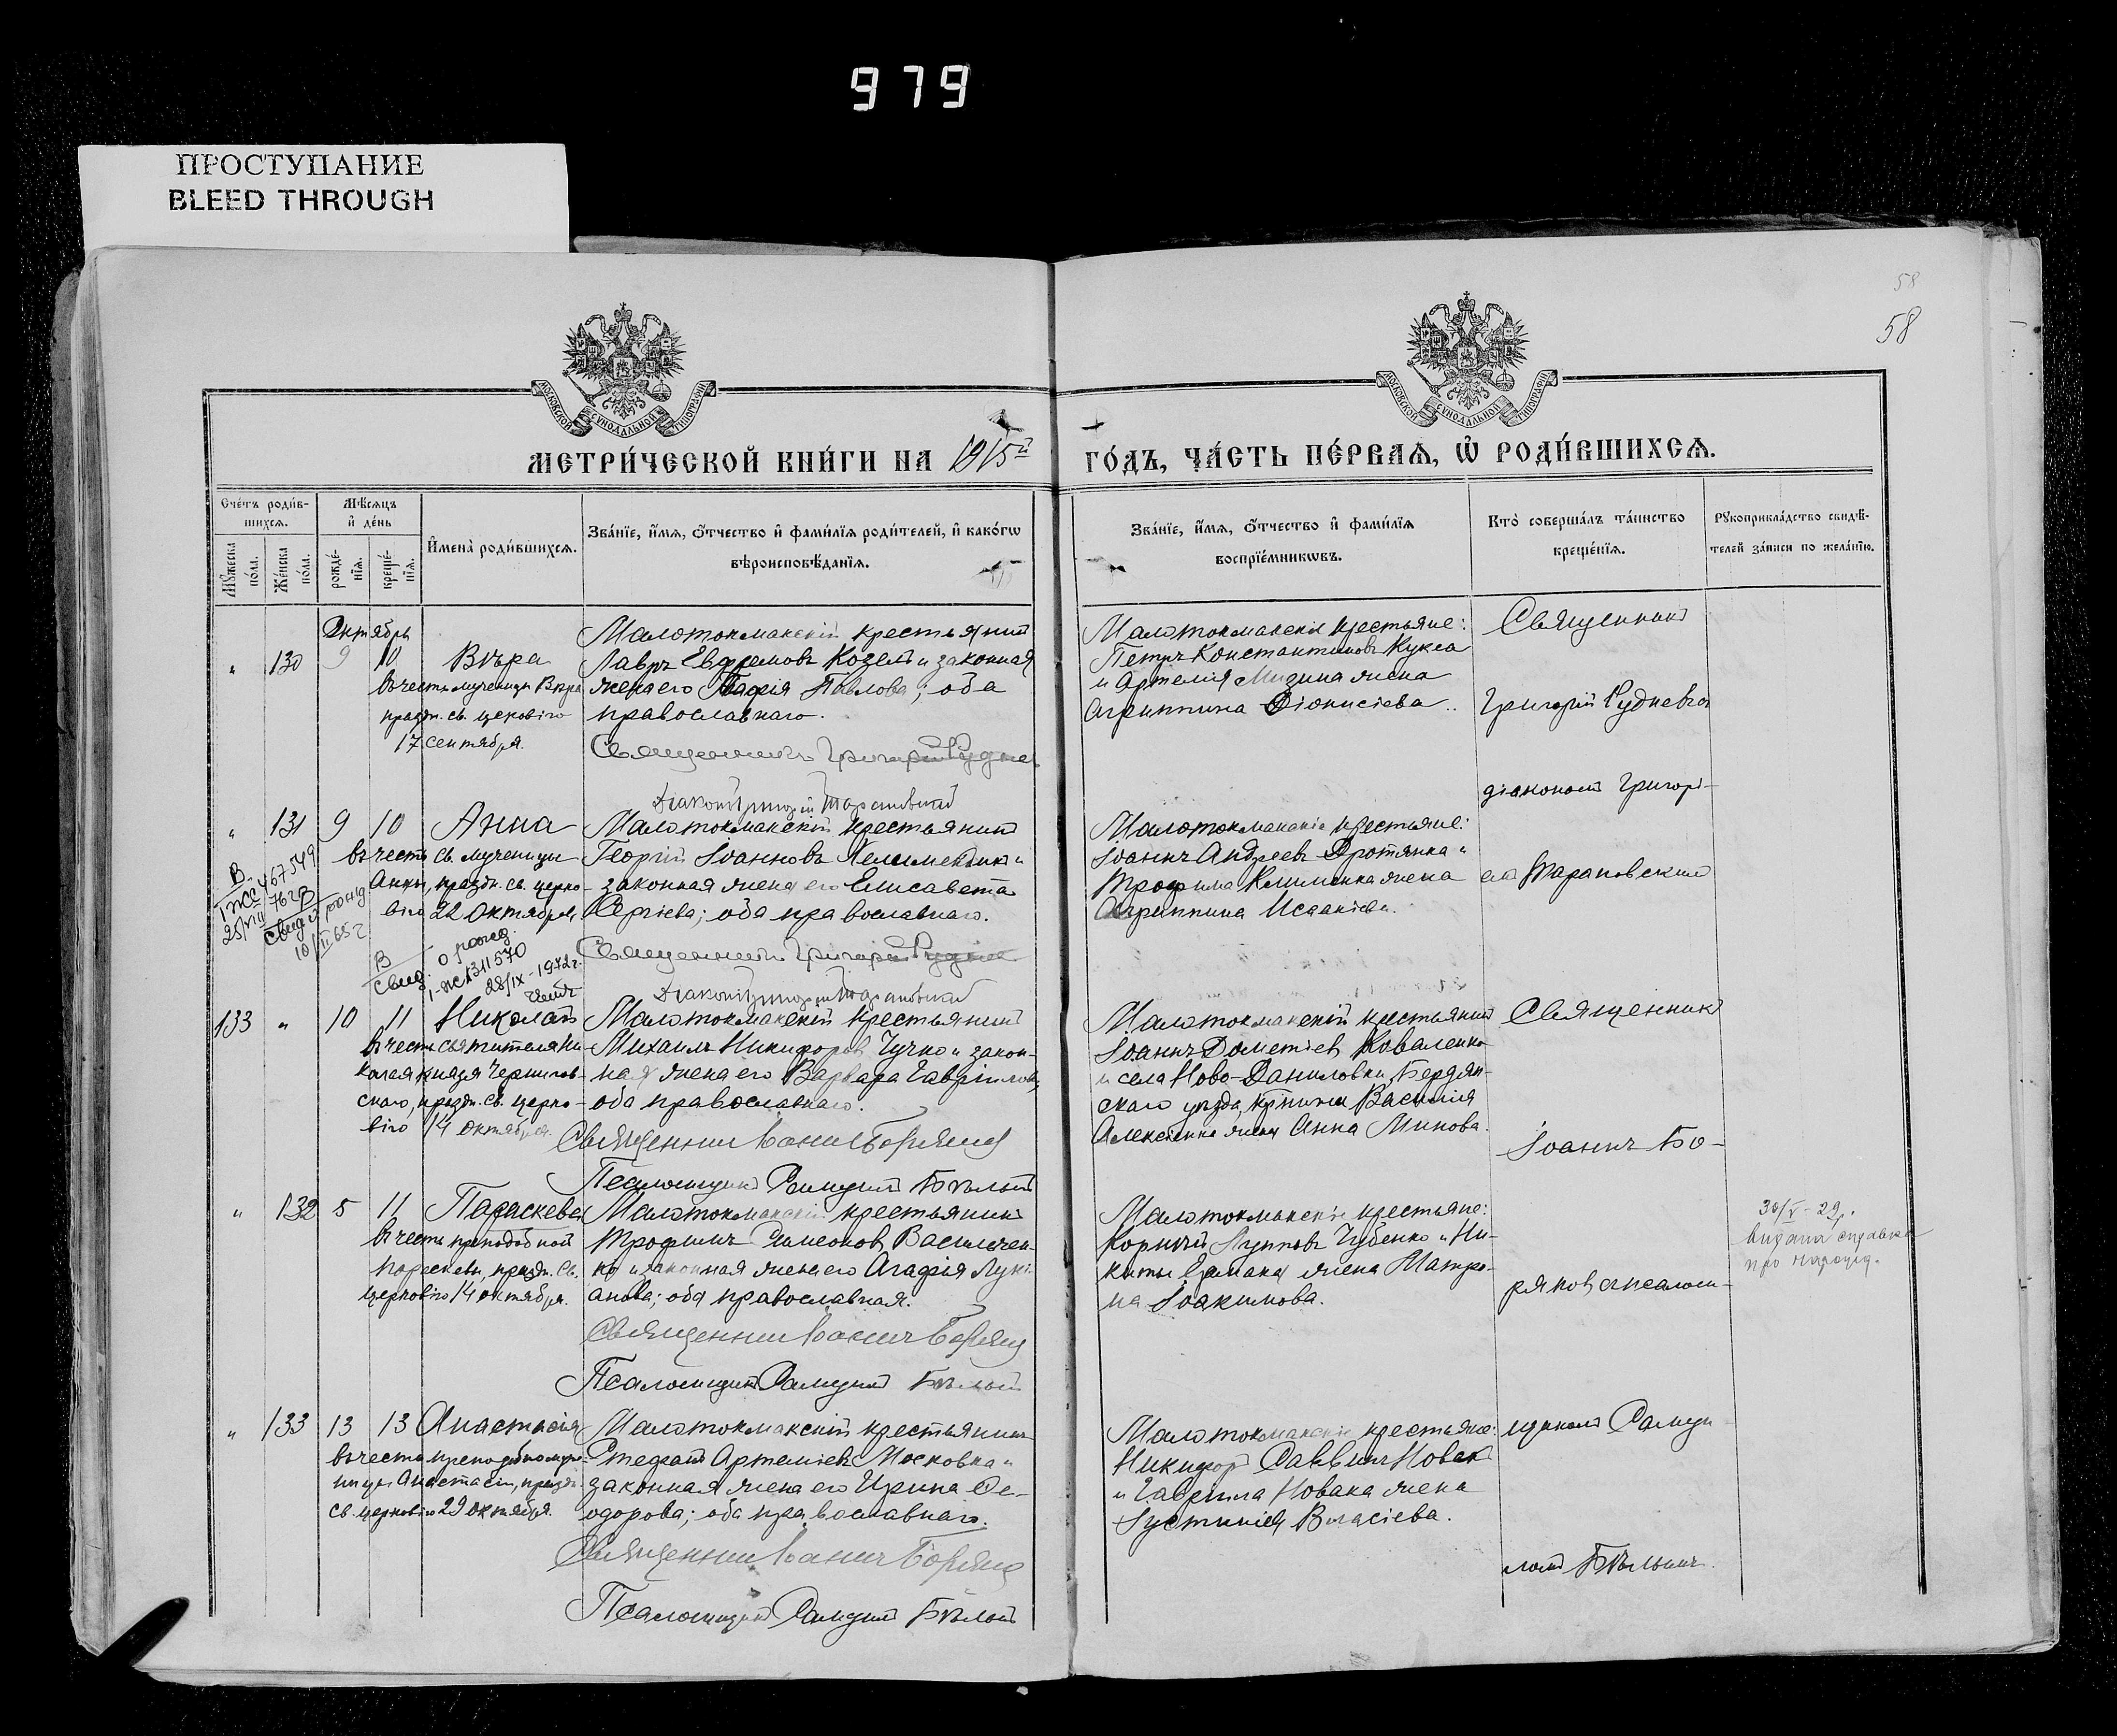 979
ПРОСТУПАНИЕ
BLEED THROUGH
58
58
МОСКОВСКОЙ СѴНОДАЛЬНОЙ ТИПОГРАФІИ
МОСКОВСКОЙ СѴНОДАЛЬНОЙ ТИПОГРАФІИ
МЕТРИ́ЧЕСКОЙ КНИ́ГИ НА 1915й ГО́ДЪ, ЧА́СТЬ ПЕ́РВАѦ, Ѡ҆ РОДИ́ВШИХСѦ.
Сче́тъ роди́вшихсѧ.
Мꙋ́жеска по́ла.
Же́нска по́ла.
Мѣ́сѧцъ и҆ де́нь
рожде́нїѧ.
креще́нїѧ.
И҆мена̀ роди́вшихсѧ.
Зва́нїе, и҆́мѧ, ѻ҆́тчество и҆ фами́лїѧ роди́телей, и҆ како́гѡ
вѣроисповѣ́данїѧ.
Зва́нїе, и҆́мѧ, ѻ҆́тчество и҆ фами́лїѧ
воспрїе́мникѡвъ.
Кто̀ соверша́лъ та́инство
креще́нїѧ.
Рꙋкоприкла́дство свидѣ́-
телей за́писи по жела́нїю.
Октябрь
" 130 9 10 Вѣра
въ честь мученицы Вѣры
праздн. св. церковію
17 сентября.
Малотокмакскій крестьянинъ
Лавръ Евфремовъ Козелъ и законная
жена его Павлова; оба
православнаго.
Священникъ Григорій Руднев
Діаконъ Григорій Тарановскій
Малотокмакскіе крестьяне:
Петръ Константиновъ Кукса
и Артемія Мизина жена
Агриппина Діонисіева.
Священникъ
Григорій Рудневъ
діакономъ Григорі-
емъ Тарановскимъ
" 131 9 10 Анна
въ честь св. мученицы
Анны, праздн. св. церко-
вію 22 октября,
В
I ЖС 467549
25/VIII 76 г
Малотокмакскій крестьянинъ
Георгій Іоанновъ и
законная жена его Елисавета
Сергіева; оба православнаго.
Священникъ Григорій Руднев
Діаконъ Григорій Тарановскій
Малотокмакскіе крестьяне:
Іоаннъ Андреевъ Протянка и
Трофима Клименка жена
Агриппина Исаакіева.
В
Свид. о рожд.
I-ЖС 1311570
28/IX-1972г.
133 " 10 11 Николай
въ честь святителя Ни-
колая князя Чернигов-
скаго, праздн. св. церко-
вію 14 октября.
Малотокмакскій крестьянинъ
Михаилъ Никифоровъ Чучко и закон-
ная жена его Варвара Гавріилова;
оба православнаго.
Священникъ Іоаннъ Боряков
Псаломщикъ Самуилъ Бѣлый
Малотокмакскій крестьянинъ
Іоаннъ Дометіевъ Коваленко
и села Ново-Даниловки, Бердян-
скаго уѣзда, Василія
Алексѣенка жена Анна Минова.
Священникъ
Іоаннъ Бо-
ряковъ с псалом-
щикомъ Самуи-
ломъ Бѣлымъ.
" 132 5 11 Параскева
въ честь преподобной
Параскевы, праздн. св.
церковію 14 октября.
Малотокмакскій крестьянинъ
Трофимъ Симеоновъ Васильчен-
ко и законная жена его Агафія Лукі-
анова; оба православная.
Священникъ Іоаннъ Боряков
Псаломщикъ Самуилъ Бѣлый
Малотокмакскіе крестьяне:
Корнилій Лупповъ Чубенко и Ни-
киты Ермака жена Матро-
на Іоакимова.
30/V-29.
видана справка
про народж.
" 133 13 13 Анастасія
въ честь преподобномуче-
ницы Анастасіи, праздн.
св. церковію 29 октября.
Малотокмакскій крестьянинъ
Стефанъ Артеміевъ Московка и
законная жена его Ирина Ѳе-
одорова; оба православнаго.
Священникъ Іоаннъ Боряков
Псаломщикъ Самуилъ Бѣлый
Малотокмакскіе крестьяне:
Никифоръ Саввинъ Новакъ
и Гавріила Новака жена
Іустинія Власіева.